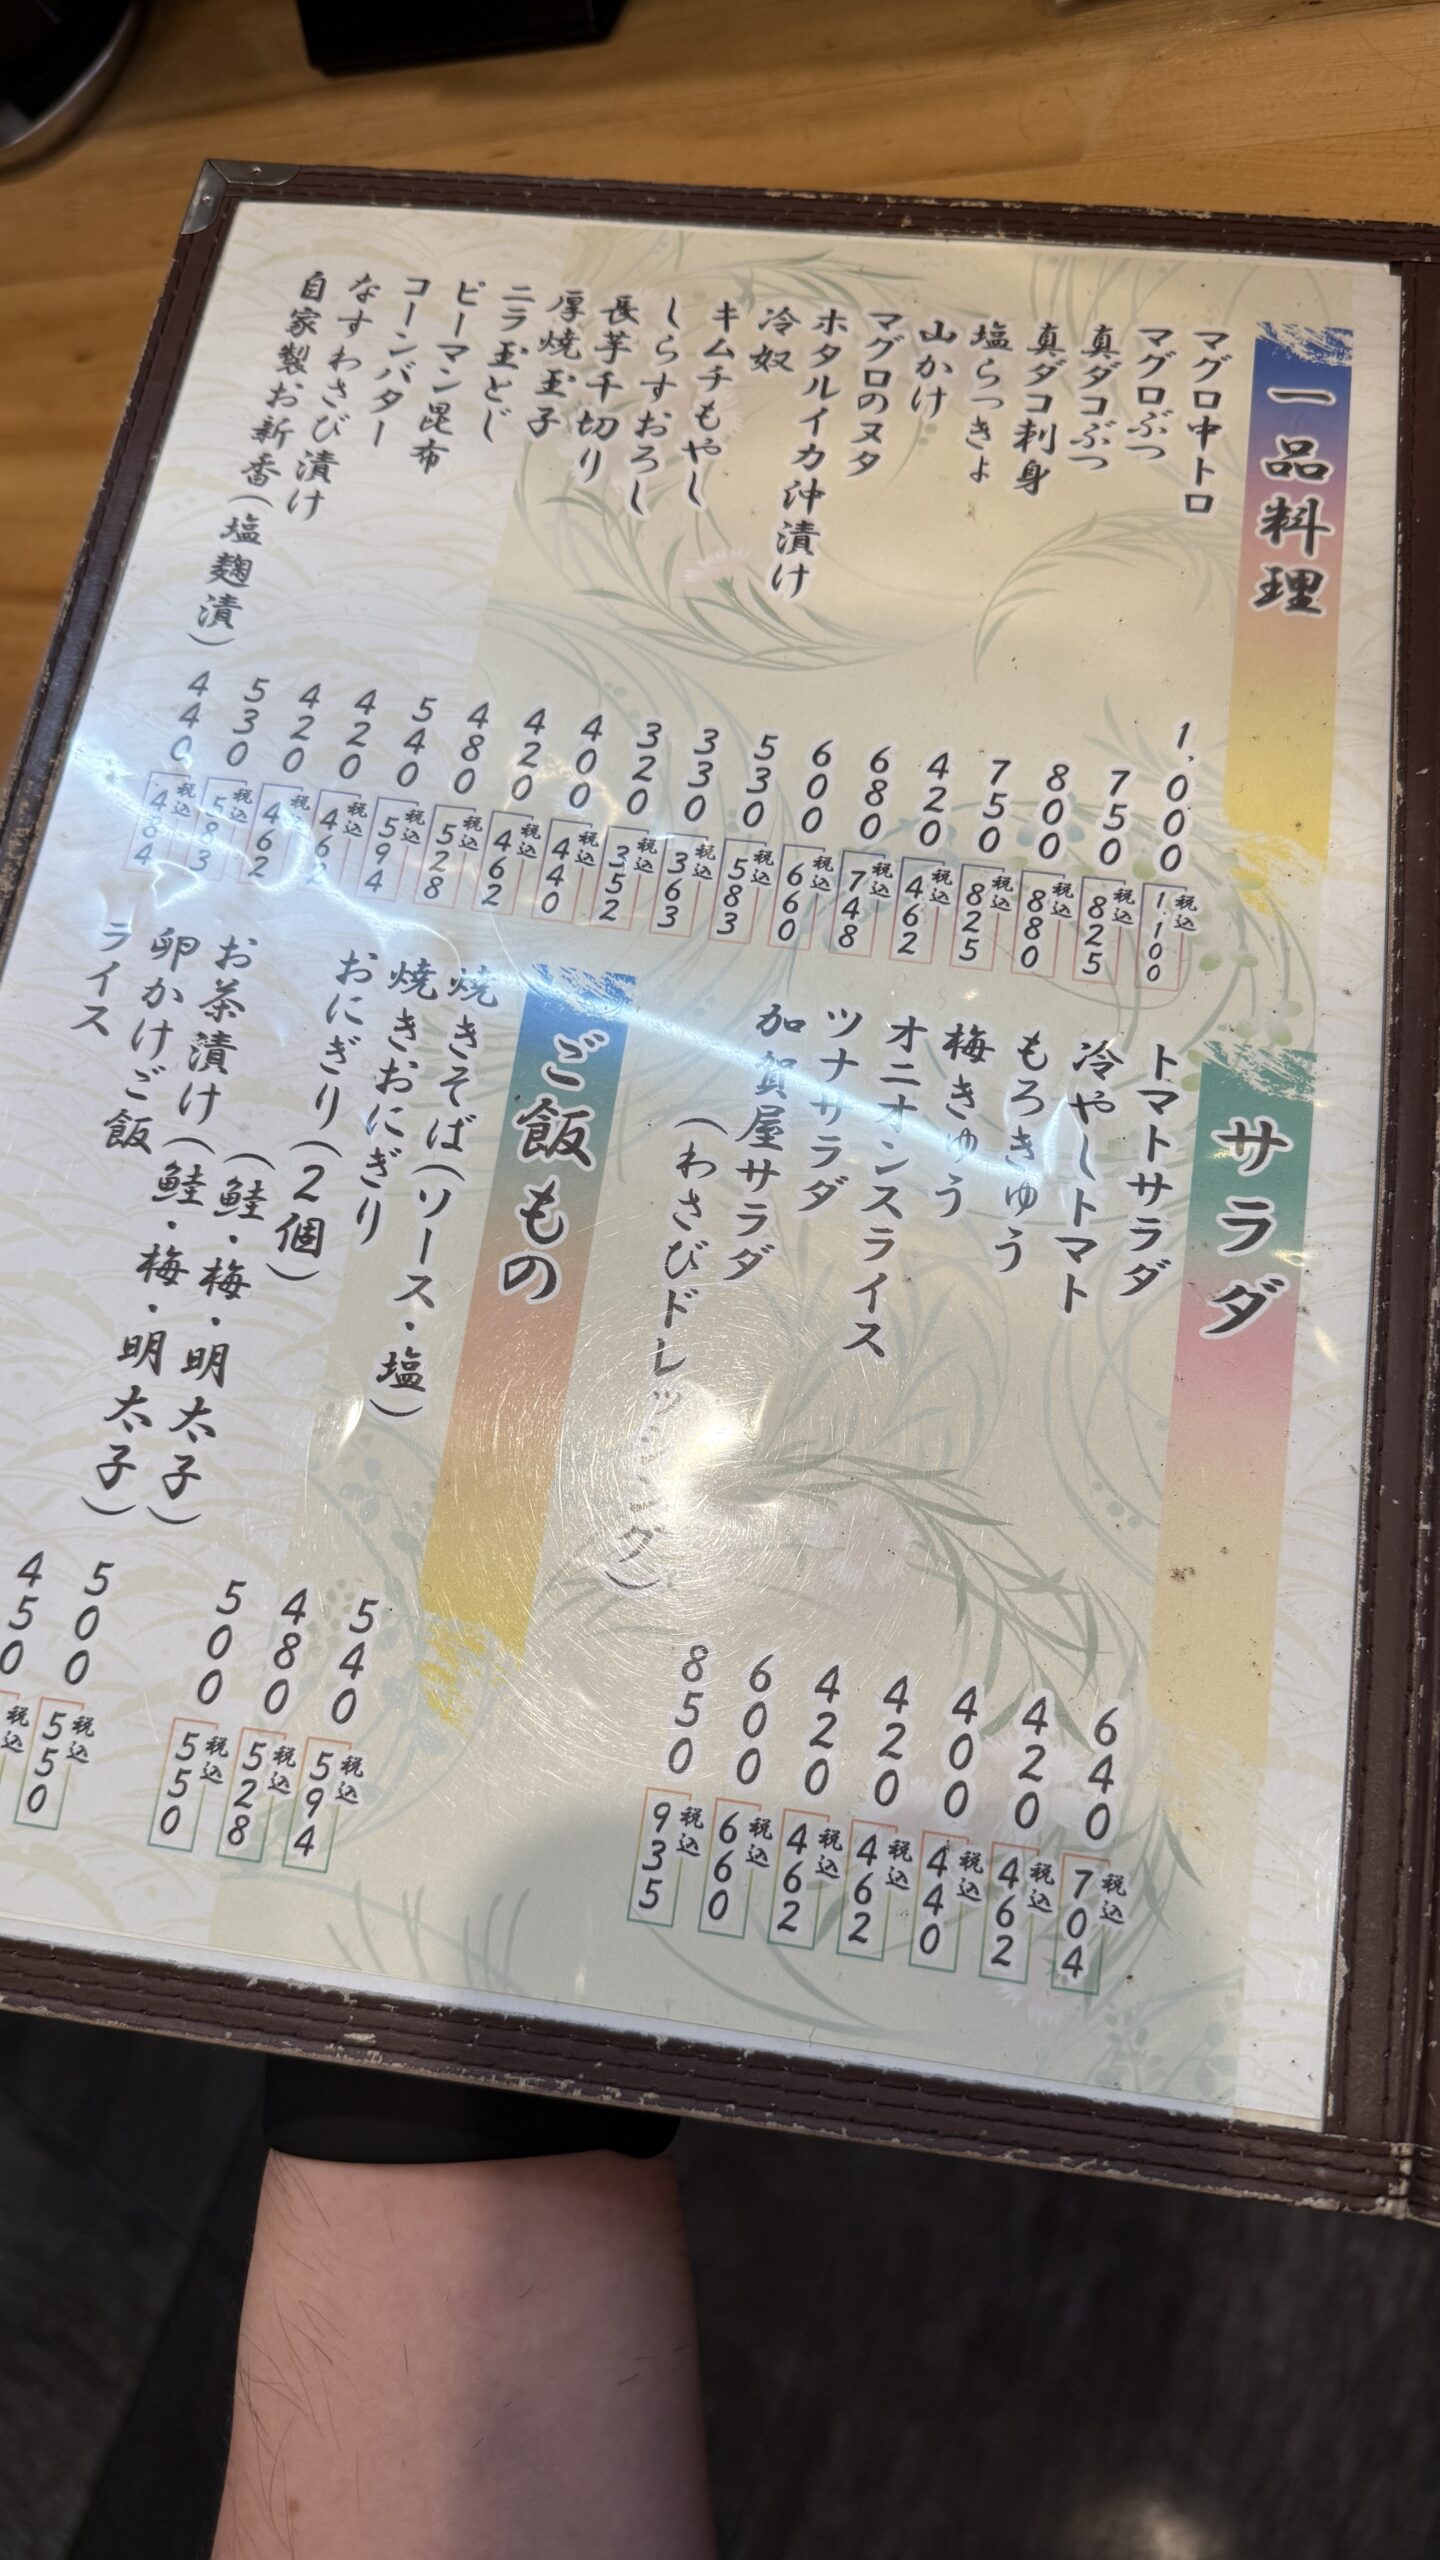 一品料理
マグロ中トロ 1,000 税込1,100
マグロぶつ 750 税込825
真ダコぶつ 800 税込880
真ダコ刺身 750 税込825
塩らっきょ 420 税込462
山かけ 680 税込748
マグロのヌタ 600 税込660
ホタルイカ沖漬け 530 税込583
冷奴 330 税込363
キムチもやし 320 税込352
しらすおろし 400 税込440
長芋千切り 420 税込462
厚焼玉子 480 税込528
ニラ玉とじ 540 税込594
ピーマン昆布 420 税込462
コーンバター 420 税込462
なすわさび漬け 530 税込583
自家製お新香(塩麹漬) 440 税込484
サラダ
トマトサラダ 640 税込704
冷やしトマト 420 税込462
もろきゅう 400 税込440
梅きゅう 420 税込462
オニオンスライス 420 税込462
ツナサラダ 600 税込660
加賀屋サラダ 850 税込935
(わさびドレッシング)
ご飯もの
焼きそば(ソース・塩) 540 税込594
焼きおにぎり 480 税込528
おにぎり(2個) 500 税込550
(鮭・梅・明太子)
お茶漬け(鮭・梅・明太子) 500 税込550
卵かけご飯 450 税込
ライス